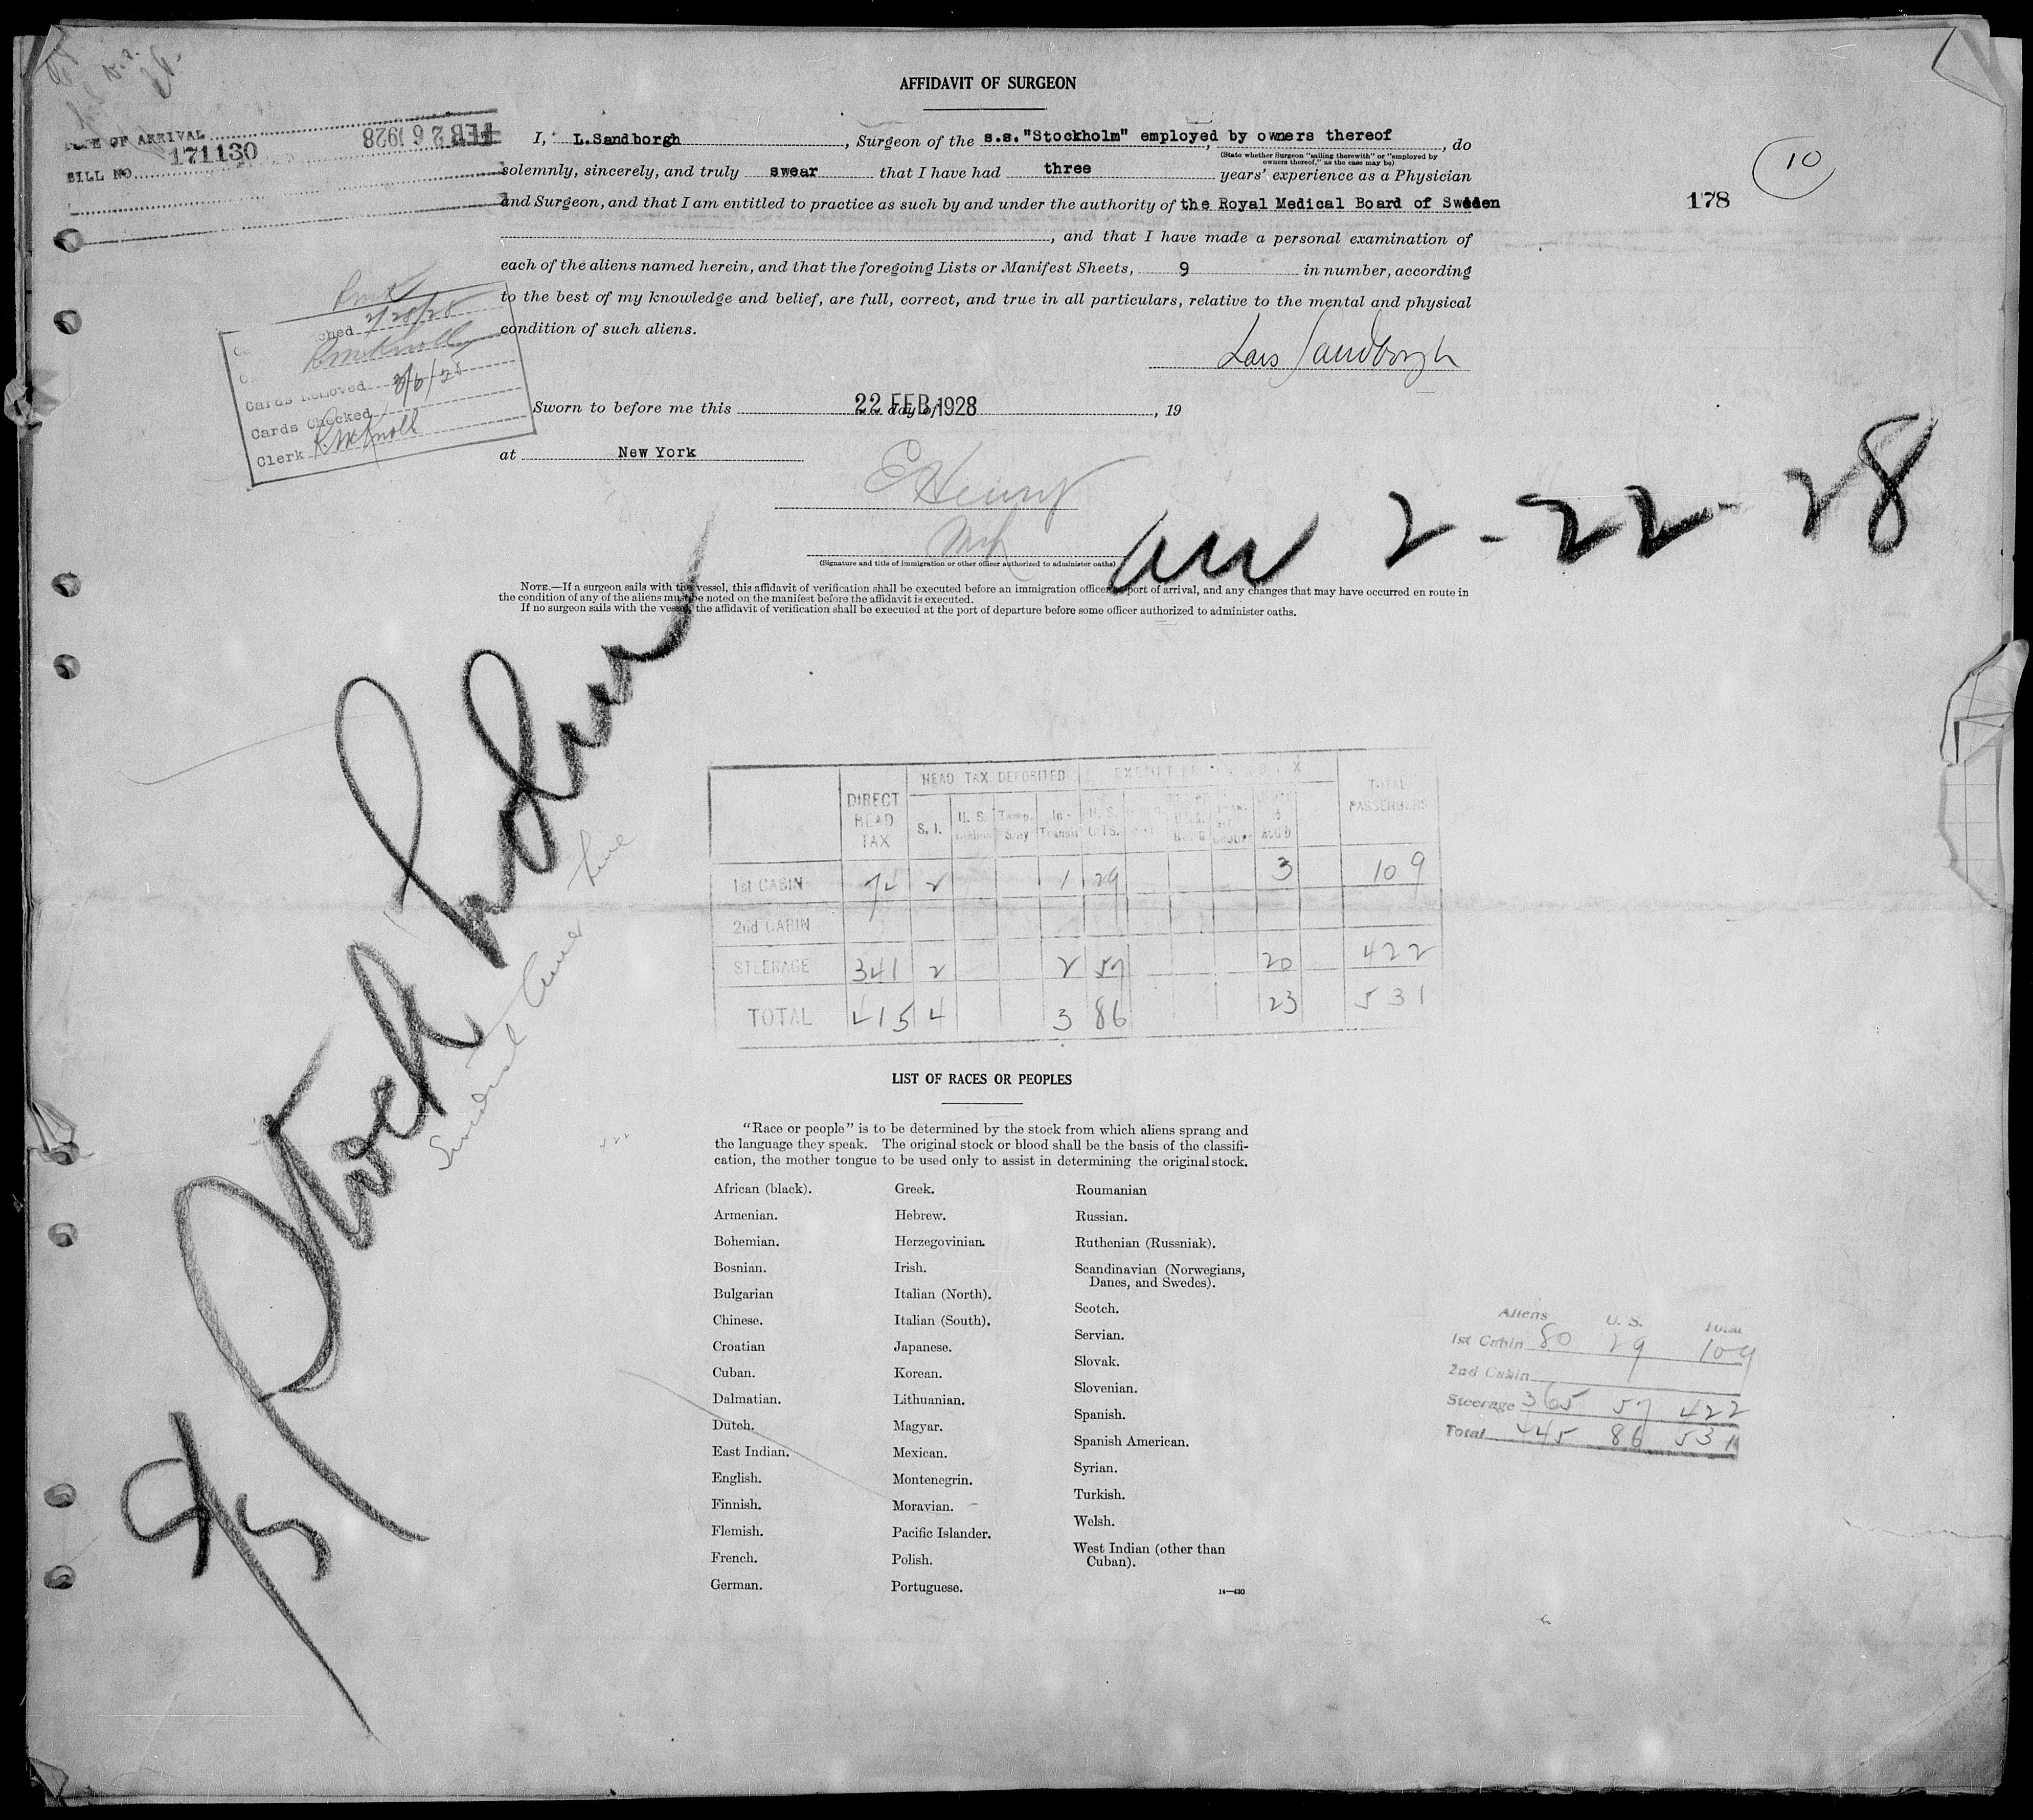 AFFIDAVIT OF SURGEON
OF ARRIVAL FEB 26 1928
BILL NO. 171130
I, L.Sandborgh, Surgeon of the s.s."Stockholm" employed by owners thereof, do
(State whether Surgeon "sailing therewith" or "employed by
owners thereof," as the case may be)
solemnly, sincerely, and truly swear that I have had three years' experience as a Physician
and Surgeon, and that I am entitled to practice as such by and under the authority of the Royal Medical Board of Sweden
, and that I have made a personal examination of
each of the aliens named herein, and that the foregoing Lists or Manifest Sheets, 9 in number, according
to the best of my knowledge and belief, are full, correct, and true in all particulars, relative to the mental and physical
condition of such aliens.
10
178
2/28/28
Cards Removed 3/6/28
Cards Checked
Clerk RMKnoll
Lars Sandborgh
Sworn to before me this 22 FEB 1928 day of , 19
at New York
E Henry
(Signature and title of immigration or other officer authorized to administer oaths)
arr 2-22-28
NOTE.—If a surgeon sails with the vessel, this affidavit of verification shall be executed before an immigration officer port of arrival, and any changes that may have occurred en route in
the condition of any of the aliens must be noted on the manifest before the affidavit is executed.
If no surgeon sails with the vessel, the affidavit of verification shall be executed at the port of departure before some officer authorized to administer oaths.
SS Stockholm
Swedish Amer Line
422
HEAD TAX DEPOSITED EXEMPT
DIRECT HEAD TAX S. I. U. S. Temp. Stay In-Transit U. S. CITS. TOTAL PASSENGERS
1st CABIN 74 2 1 29 3 109
2nd CABIN
STEERAGE 341 2 2 57 20 422
TOTAL 415 4 3 86 23 531
LIST OF RACES OR PEOPLES
"Race or people" is to be determined by the stock from which aliens sprang and
the language they speak. The original stock or blood shall be the basis of the classifi-
cation, the mother tongue to be used only to assist in determining the original stock.
African (black).
Armenian.
Bohemian.
Bosnian.
Bulgarian
Chinese.
Croatian
Cuban.
Dalmatian.
Dutch.
East Indian.
English.
Finnish.
Flemish.
French.
German.
Greek.
Hebrew.
Herzegovinian.
Irish.
Italian (North).
Italian (South).
Japanese.
Korean.
Lithuanian.
Magyar.
Mexican.
Montenegrin.
Moravian.
Pacific Islander.
Polish.
Portuguese.
Roumanian
Russian.
Ruthenian (Russniak).
Scandinavian (Norwegians,
Danes, and Swedes).
Scotch.
Servian.
Slovak.
Slovenian.
Spanish.
Spanish American.
Syrian.
Turkish.
Welsh.
West Indian (other than
Cuban).
14—430
Aliens U. S. Total
1st Cabin 80 29 109
2nd Cabin
Steerage 365 57 422
Total 445 86 531